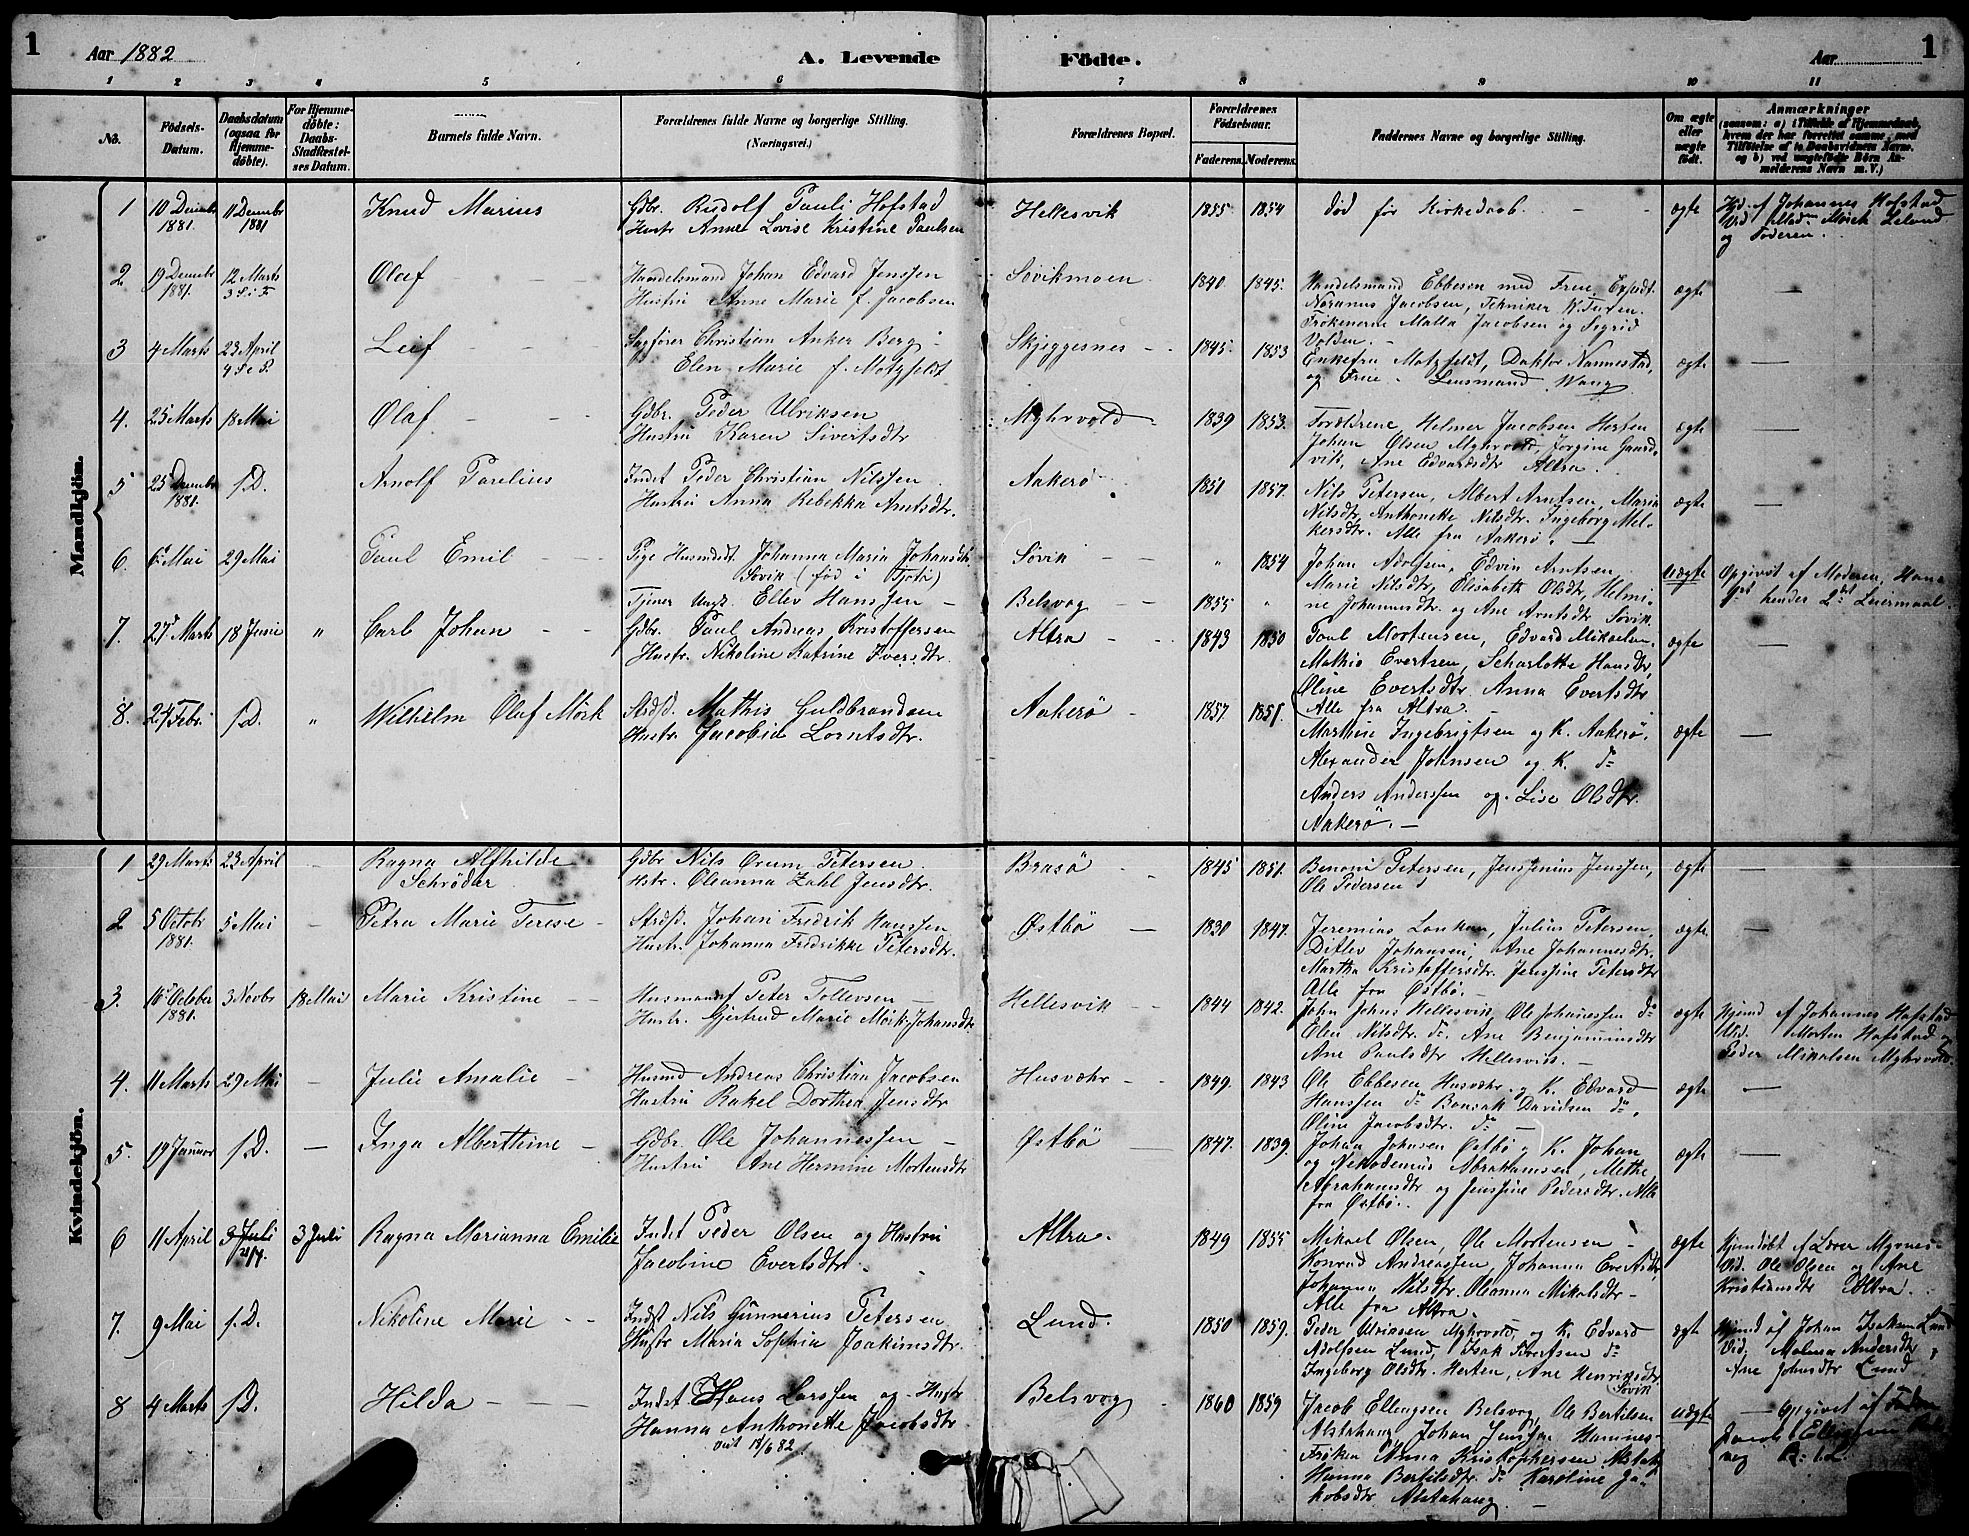 1
Aar 1882
A. Levende
Födte.
Aar
1
1 2 3 4 5 6 7 8 9 10 11
No.
Födsels-
Datum.
Daabsdatum
(ogsaa for
Hjemme-
döbte).
For Hjemme-
döbte:
Daabs-
Stadfæstel-
ses Datum.
Barnets fulde Navn.
Forældrenes fulde Navne og borgerlige Stilling.
(Næringsvei.)
Forældrenes Bopæl.
Forældrenes
Födselsaar.
Faderens. Moderens.
Faddernes Navne og borgerlige Stilling.
Om ægte
eller
uægte
födt.
Anmærkninger
(saasom: a) i Tilfælde af Hjemmedaab,
hvem der har forrettet samme, med
Tilföielse af to Daabsvidners Navne.
og b) ved uægtefödte Börn An-
melderens Navn m. V.)
Mandkjön.
1 10 Decembr 1881. 11 Decembr 1881 Knud Marius
Gbr. Rudolf Pauli Hofstad
Hustr Anne Lovise Kristine Paulsen
Hellesvik 1855 1854 död för Kirkedaab. ægte
Hd. af Johannes Hofstad
Vid Mörch Leland
og Faderen.
2. 19 Decembr 1881. 12 Marts 3 S. i F. Olaf
Handelsmand Johan Edvard Jenssen
Hustru Anne Marie f. Jacobsen
Sövikmoen 1840 1845.
Handelsmand Ebbesen med Frue, Expedt.
Jacobsen, Tekniker
Frökenerne Malla Jacobsen og Sigrid
Volden.
ægte
3 4 Marts 23 April Leif
Sagförer Christian Anker Berg
Elen Marie f. Motzfeldt
Skjeggesnes 1845. 1853
Enkefru Motzfeldt, Doktor Nannestad,
og Frue. Lensmand Wang
ægte
4. 25 Marts 18 Mai Olaf
Gbr. Peder Ulriksen
Hustru Karen Sivertsdtr
Myhrvold 1839 1853.
Forældrene, Helmer Jacobsen Herten
Johan Olsen Myhrvold, Jorgine
vik, Ane Edvardsdtr Altra
ægte
5 25 Decembr 1881. s. D. Arnolf Paulius
Indst Peder Christian Nilssen
Hustru Anna Rebekka Arntsdtr.
Aakerö 1851 1857.
Nils Petersen, Albert Arntsen, Maria
Nilsdtr Anthonette Nilsdtr. Ingeborg Mel-
kersdtr. Alle fra Aakerö.
ægte
6. 6 Mai 29 Mai Paul Emil
Pige Husmdt. Johanna Maria Johansdtr
Sövik (föd i Tjötö)
Tjener Ungk. Ellev Hanssen
Sövik " 1854
Belsvog 1855 "
Johan Adolfsen, Edvin Arntsen
Marie Nilsdtr, Elisabeth Olsdtr, Helmi-
ne Johannesdtr. og Ane Arntsdtr Sövik
uægte
Opgivet af Moderen, Hans
1ste hendes 2det Leiermaal.
7. 27 Marts 18 Juni " Carl Johan
Gbr. Paul Andreas Kristoffersen
Hustr. Nikoline Katrine Iversdtr.
Altra 1843 1850
Paul Mortensen, Edvard Mikaelsen,
Mathis Evertsen, Scharlotte Hansdtr,
Oline Evertsdtr. Anna Evertsdtr
Alle fra Altra.
ægte
8. 24 Febr. s. D. " Wilhelm Olaf Mörk
Strdsd. Mathis Guldbrandsen
Hustr Jacobie Lorntsdtr.
Aakerö 1857 1851.
Marthin Ingebrigtsen og K. Aakerö.
Alexander Johnsen og K. do
Anders Anderssen og Lise Olsdtr.
Aakerö.
ægte
Kvindekjön.
1 29 Marts 23 April Ragna Alfhilde
Schröder
Gbr Nils Orum Petersen
Hstr. Oleanna Zahl Jensdtr.
Brasö 1845 1851.
Benoni Petersen, Jenssenius Jenssen,
Ole Pedersen
ægte
2 5 Octobr 1881. 5 Mai Petra Marie Terese
Strdsd. Johan Fredrik Hanssen
Hustr. Johanna Fredrikke Petersdtr.
Östbö 1830 1847.
Jeremias Lonkan, Julius Petersen,
Ditlev Johansen, Ane Johannesdtr.
Martha Kristoffersdtr. Jenssine Petersdtr
Alle fra Östbö.
ægte
3. 16 October 1881. 3 Novbr 18 Mai Marie Kristine
Husmand Peter Tollevsen
Hustr. Gjertrud Marie Mörk Johansdtr
Hellesvik 1844 1842.
John Johns Hellesvig, Ole Johanessen do
Elen Nilsdtr. do. Ane Benjaminsdtr
Ane Paulsdtr Hellesvig.
ægte
Hjemd af Johannes Hofstad
Vid. Morten Hofstad og
Peder Mikalsen Myhrvold.
4. 11 Marts 29 Mai Julie Amalie
Husmd Andreas Christian Jacobsen
Hustru Rakel Dorthea Jensdtr
Husvæhr 1849. 1843
Ole Ebbesen Husvæhr og K. Edvard
Hanssen do Davidsen do,
Oline Jacobsdtr. do
ægte
5. 19 Januar s. D. Inga Alberthine
Gbr. Ole Johannessen
Hustru Ane Hermine Mortensdtr
Östbö 1847. 1839.
Johan Johnsen Östbö og K. Johan
og Nekodemus Abrahamsen, Methe
Abrahamsdtr og Jenssine Pedersdtr. Alle
fra Östbö.
ægte
6 11 April 3 Juli Ragna Marianna Emilie
Indst Peder Olsen og Hustru
Jacobine Evertsdtr.
Altra. 1849 1855
Mikael Olsen, Ole Mortensen
Konrad Andreassen, Johanna Evertsdtr,
Johanna Nilsdtr. Oleanna Mikalsdtr
Alle fra Altra.
ægte
Hjemdöbt af Lærer Myrnes.
Vid. Ole Olsen og Ane
Kristiansdtr Altra.
7. 9 Mai s. D. Nikoline Marie
Indst Nils Gunnerius Petersen
Hustr Maria Sophia Joakimsdtr.
Lund. 1850 1859.
Peder Ulriksen Myhrvold, og K. Edvard
Adolfsen Lund, Isak Sivertsen do
Ingeborg Olsdtr. Herten, Ane Henriksdtr.
Sövik
ægte
Hjemd af Johan Isaksen Lund
Vid. Malena Andersdtr,
Ane Johnsdtr Lund
8 4 Marts s. D. Hilda
Indst Hans Larssen og Hustr
Hanna Anthonette Jacobsdtr
viet 18/6 82.
Belsvog 1860 1859
Jacob Ellingsen Belsvog, Ole Bertelsen
Alstahaug, Johan Jenssen Hamnes
Fröken Anna Kristophersen Alstah.
Hanna Bertelsdtr. do Karoline Ja-
kobsdtr Alstahaug
uægte
Opgivet af Faderen
Jacob Ellingsen Bels-
vog